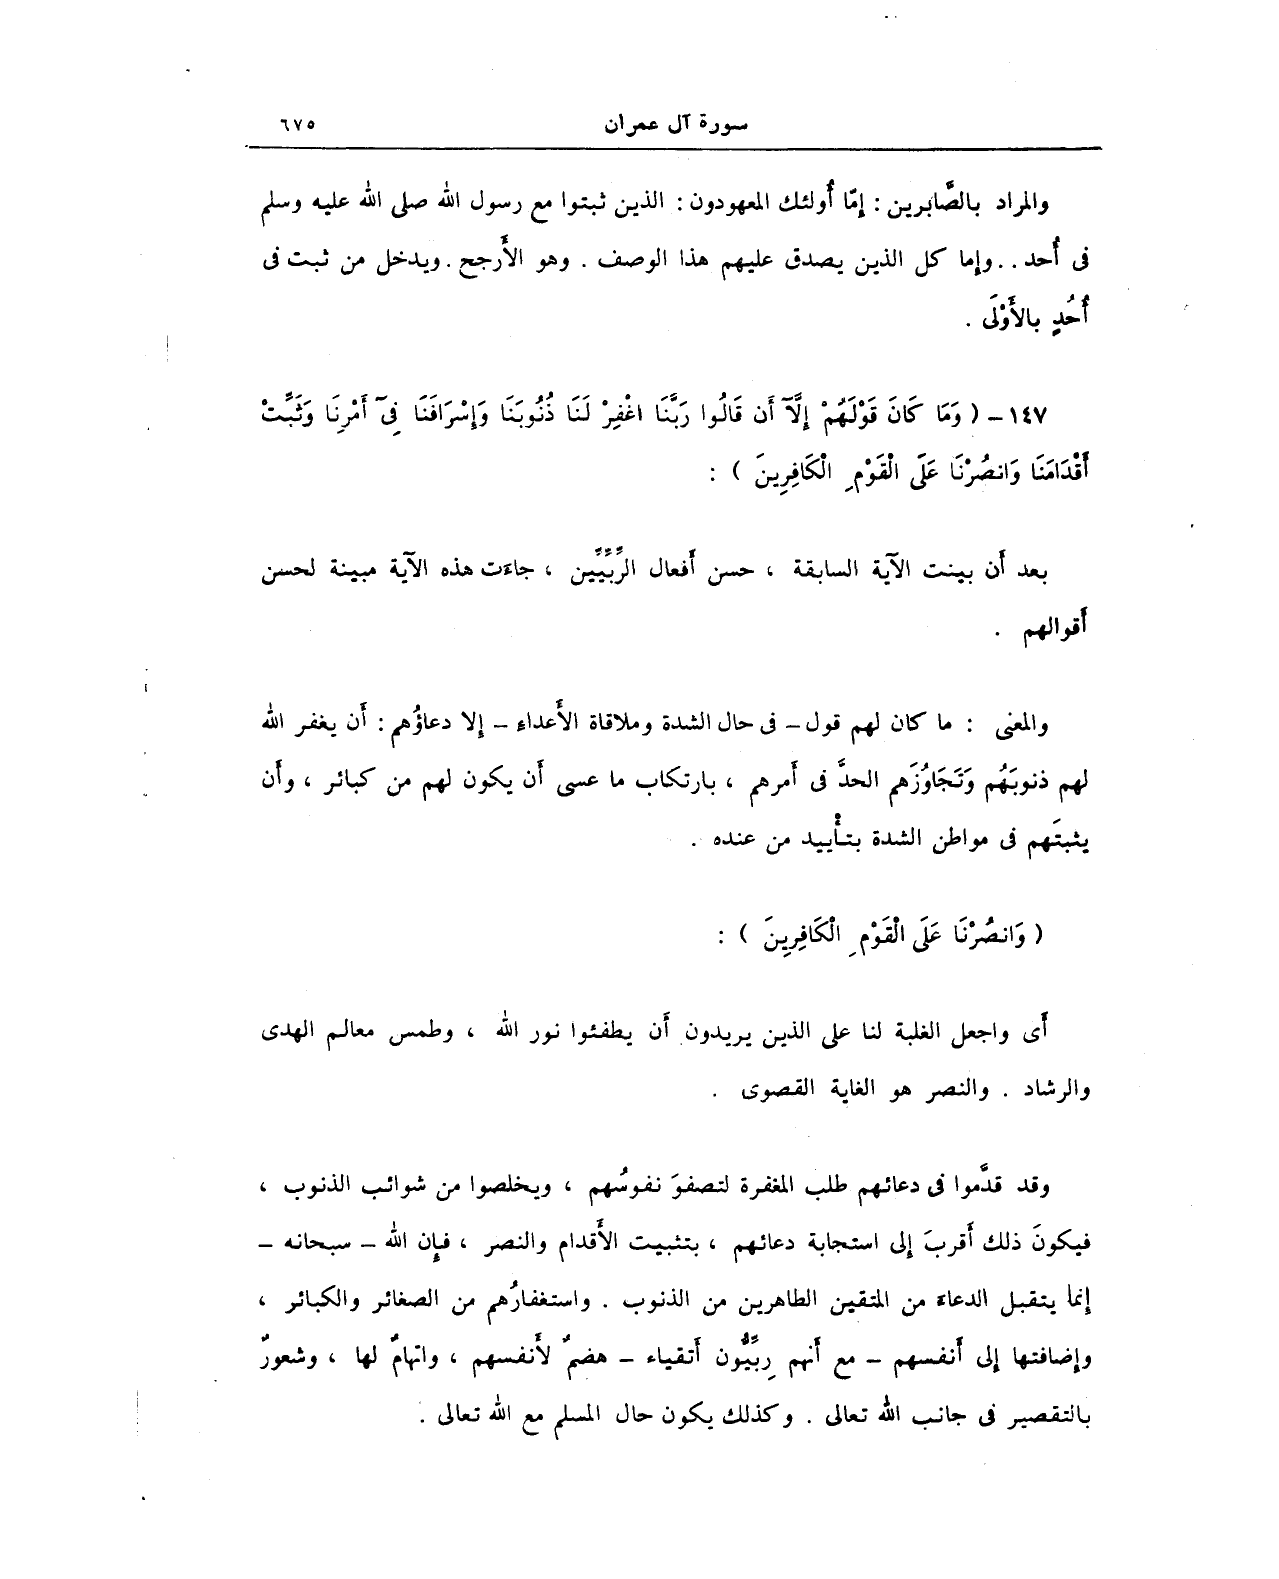 سورة آل عمران ٦٧٥
والمراد بالصَّابرين : إمّا أُولئك المعهودون : الذين ثبتوا مع رسول الله صلى الله عليه وسلم
فى أُحد . . وإما كل الذين يصدق عليهم هذا الوصف . وهو الأَرجح . ويدخل من ثبت فى
أُحُدٍ بالأَوْلَى .
١٤٧ - ( وَمَا كَانَ قَوْلَهُمْ إِلَّآ أَن قَالُوا رَبَّنَا اغْفِرْ لَنَا ذُنُوبَنَا وَإِسْرَافَنَا فِىٓ أَمْرِنَا وَثَبِّتْ
أَقْدَامَنَا وَانصُرْنَا عَلَى الْقَوْمِ الْكَافِرِينَ ) :
بعد أَن بينت الآية السابقة ، حسن أَفعال الرِّبِّيِّين ، جاءَت هذه الآية مبينة لحسن
أَقوالهم .
والمعنى : ما كان لهم قول – فى حال الشدة وملاقاة الأَعداءِ – إلا دعاؤُهم : أَن يغفر الله
لهم ذنوبَهُم وَتَجَاوُزَهم الحدَّ فى أَمرهم ، بارتكاب ما عسى أَن يكون لهم من كبائر ، وأَن
يثبتَهم فى مواطن الشدة بتأْييد من عنده .
( وَانصُرْنَا عَلَى الْقَوْمِ الْكَافِرِينَ ) :
أَى واجعل الغلبة لنا على الذين يريدون أَن يطفئوا نور الله ، وطمس معالم الهدى
والرشاد . والنصر هو الغاية القصوى .
وقد قدَّموا فى دعائهم طلب المغفرة لتصفوَ نفوسُهم ، ويخلصوا من شوائب الذنوب ،
فيكونَ ذلك أَقربَ إلى استجابة دعائهم ، بتثبيت الأَقدام والنصر ، فإن الله – سبحانه –
إنما يتقبل الدعاءَ من المتقين الطاهرين من الذنوب . واستغفارُهم من الصغائر والكبائر ،
وإضافتها إلى أَنفسهم – مع أَنهم رِبِّيُّون أَتقياء – هضمٌ لأَنفسهم ، واتهامٌ لها ، وشعورٌ
بالتقصير فى جانب الله تعالى . وكذلك يكون حال المسلم مع الله تعالى .